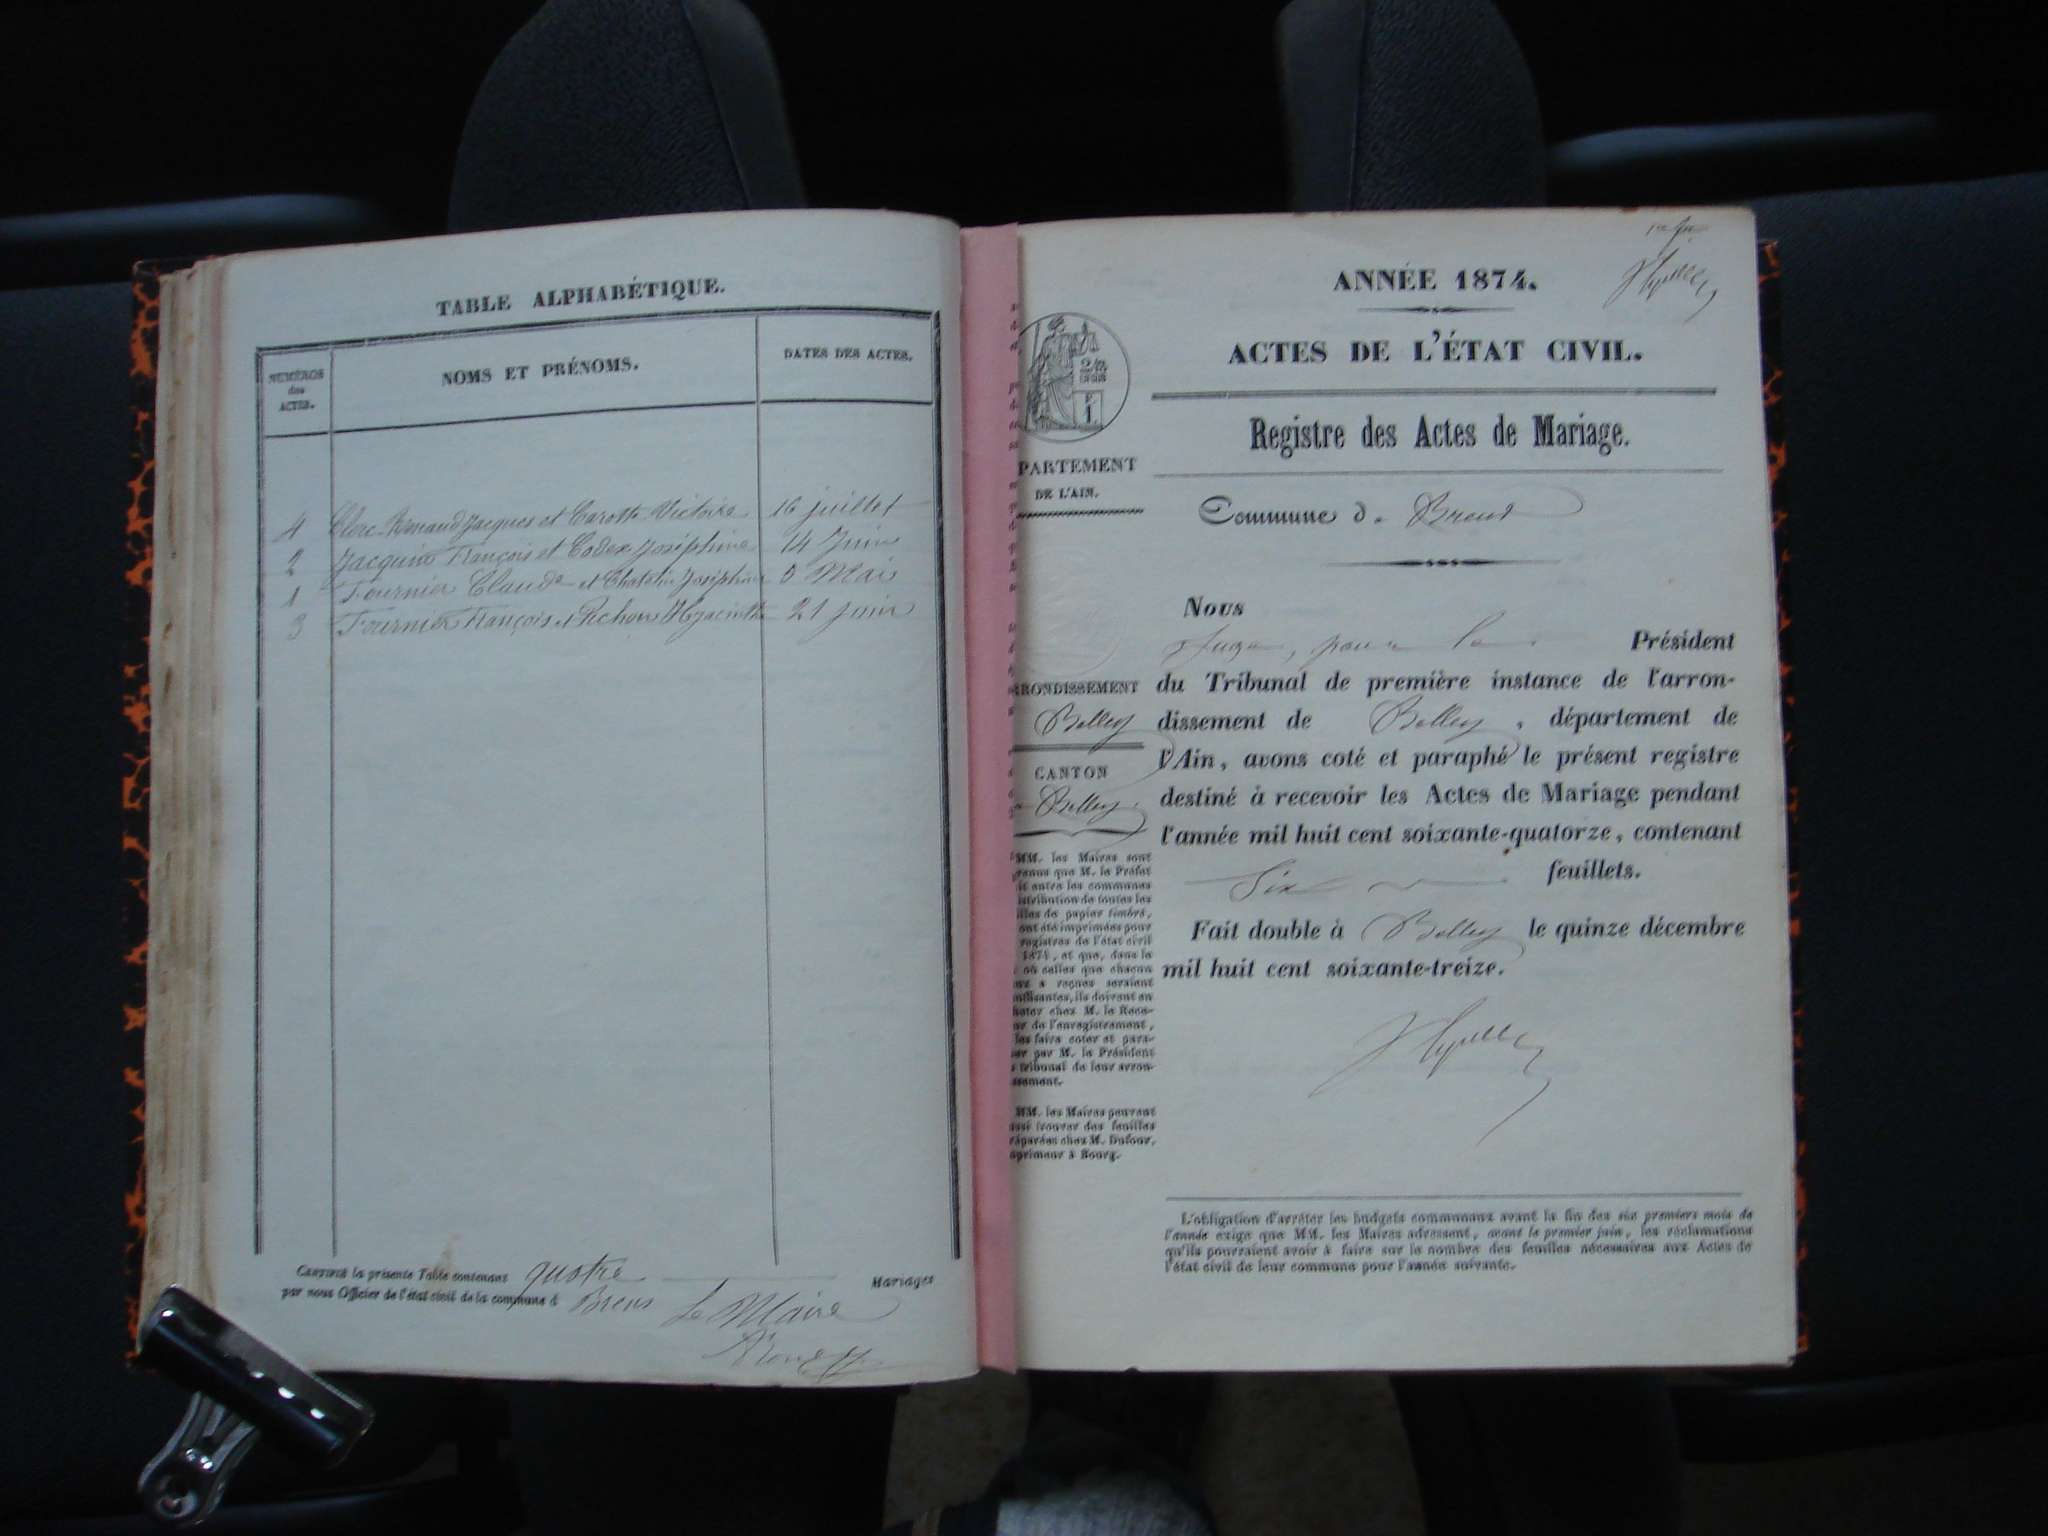 TABLE ALPHABÉTIQUE.
NUMÉROS des ACTES.
NOMS ET PRÉNOMS.
DATES DES ACTES.
4 Clerc-Renaud Jacques et Carotte Victoire 16 juillet
2 Jacquin François et Codex Joséphine 14 Juin
1 Fournier Claude et Chatelin Joséphine 5 Mai
3 Fournier François et Pichon Hyacinthe 21 juin
CERTIFIÉ la présente Table contenant quatre Mariages
par nous Officier de l'état civil de la commune d Brens Le Maire
ANNÉE 1874.
ACTES DE L'ÉTAT CIVIL.
Registre des Actes de Mariage.
Commune d e Brens
PARTEMENT
DE L'AIN.
RONDISSEMENT
Belley
CANTON
Belley
MM. les Maires sont
venus que M. le Préfet
it entre les communes
istribution de toutes les
illes de papier timbré,
ont été imprimées pour
registres de l'état civil
1874, et que, dans le
où celles que chacun
ux a reçues seraient
uffisantes, ils doivent en
heter chez M. le Rece-
ur de l'enregistrement,
les faire coter et para-
er par M. le Président
tribunal de leur arron-
ssement.
MM. les Maires peuvent
ussi trouver des feuilles
réparées chez M. Dufour,
mprimeur à Bourg.
Nous
Juge, pour le Président
du Tribunal de première instance de l'arron-
dissement de Belley, département de
l'Ain, avons coté et paraphé le présent registre
destiné à recevoir les Actes de Mariage pendant
l'année mil huit cent soixante-quatorze, contenant
Six feuillets.
Fait double à Belley le quinze décembre
mil huit cent soixante-treize.
L'obligation d'arrêter les budgets communaux avant la fin des six premiers mois de
l'année exige que MM. les Maires adressent, avant le premier juin, les réclamations
qu'ils pourraient avoir à faire sur le nombre des feuilles nécessaires aux Actes de
l'état civil de leur commune pour l'année suivante.